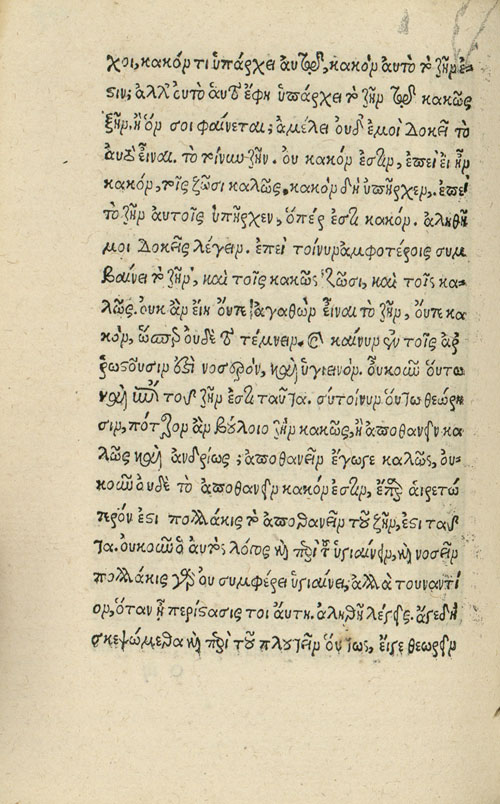 χοι, κακόν τι ὑπάρχει αὐτοῖς, κακὸν αὐτὸ τὸ ζῆν ἐ-
στιν; ἀλλ' οὐ τὸ αὐτὸ ἔφη ὑπάρχει τὸ ζῆν τοῖς κακῶς
ζῆν. ἢ ὅν σοι φαίνεται; ἀμέλει οὐδ' ἐμοὶ δοκεῖ τὸ
αὐτὸ εἶναι. τὸ τοίνυν ζῆν. οὐ κακόν ἐστιν, ἐπεὶ εἰ ἦν
κακόν, τοῖς ζῶσι καλῶς, κακὸν δὴ ὑπῆρχεν, ἐπεὶ
τὸ ζῆν αὐτοῖς ὑπῆρχεν, ὅπέρ ἐστι κακόν. ἀληθῆ
μοι δοκεῖς λέγειν. ἐπεὶ τοίνυν ἀμφοτέροις συμ
βαίνει τὸ ζῆν, καὶ τοῖς κακῶς ζῶσι, καὶ τοῖς κα-
λῶς. οὐκ ἂν εἴη οὔτε ἀγαθὸν εἶναι τὸ ζῆν, οὔτε κα
κόν, ὥσπερ οὐδὲ τὸ τέμνειν. καὶ καίνυν ἐν τοῖς ἀῤ
ῥωστοῦσιν ἐστι νοσερόν, καὶ ὑγιεινόν. οὐκοῦν οὕτω
καὶ ἐπὶ τοῦ ζῆν ἐστι ταῦτα. σὺ τοίνυν οὕτω θεώρη
σιν, πότερον ἂν βούλοιο ζῆν κακῶς, ἢ ἀποθανεῖν κα
λῶς καὶ ἀνδρίως; ἀποθανεῖν ἔγωγε καλῶς, οὐ-
κοῦν οὐδὲ τὸ ἀποθανεῖν κακόν ἐστιν, ἐπεὶ αἱρετώ
τερόν ἐστι πολλάκις τὸ ἀποθανεῖν τοῦ ζῆν, ἐστι ταῦ
τα. οὐκοῦν ὁ αὐτὸς λόγος καὶ περὶ τοῦ ὑγιαίνειν, καὶ νοσεῖν
πολλάκις γὰρ οὐ συμφέρει ὑγιαίνειν, ἀλλὰ τοὐναντί
ον, ὅταν ᾖ περίστασις τοιαύτη. ἀληθῆ λέγεις. ἄγε δὴ
σκεψώμεθα καὶ περὶ τοῦ πλουτεῖν οὕτως, εἴγε θεωρεῖν